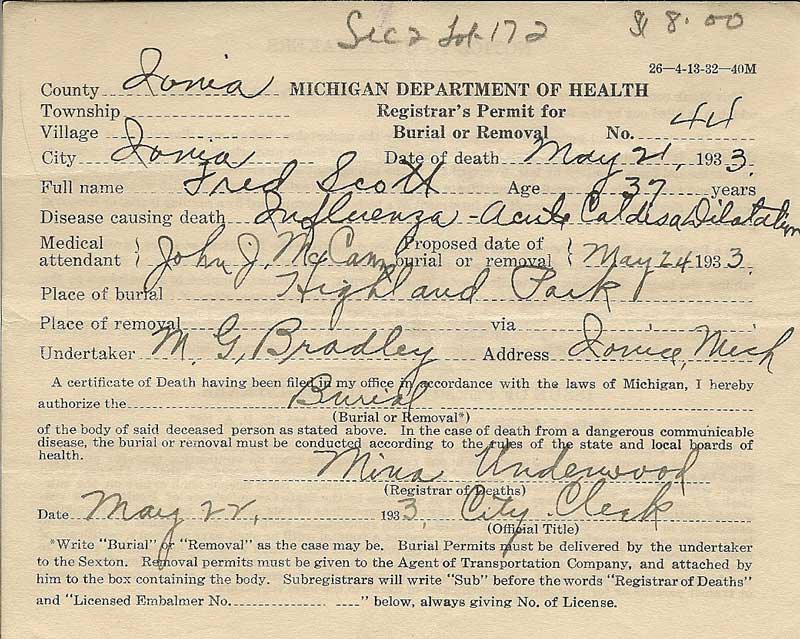 Sec 2 Lot 172 $ 8.00
26—4-13-32—40M
County Ionia MICHIGAN DEPARTMENT OF HEALTH
Township Registrar's Permit for
Village Burial or Removal No. 44
City Ionia Date of death May 21, 1933.
Full name Fred Scott Age 37 years
Disease causing death Influenza - Acute Dilatation
Medical attendant John J. McCann Proposed date of burial or removal May 24 1933.
Place of burial Highland Park
Place of removal via
Undertaker M. G. Bradley Address Ionia, Mich
A certificate of Death having been filed in my office in accordance with the laws of Michigan, I hereby
authorize the Burial
(Burial or Removal*)
of the body of said deceased person as stated above. In the case of death from a dangerous communicable
disease, the burial or removal must be conducted according to the rules of the state and local boards of
health.
Mina Underwood
(Registrar of Deaths)
Date May 22, 1933, City Clerk
(Official Title)
*Write "Burial" or "Removal" as the case may be. Burial Permits must be delivered by the undertaker
to the Sexton. Removal permits must be given to the Agent of Transportation Company, and attached by
him to the box containing the body. Subregistrars will write "Sub" before the words "Registrar of Deaths"
and "Licensed Embalmer No. " below, always giving No. of License.